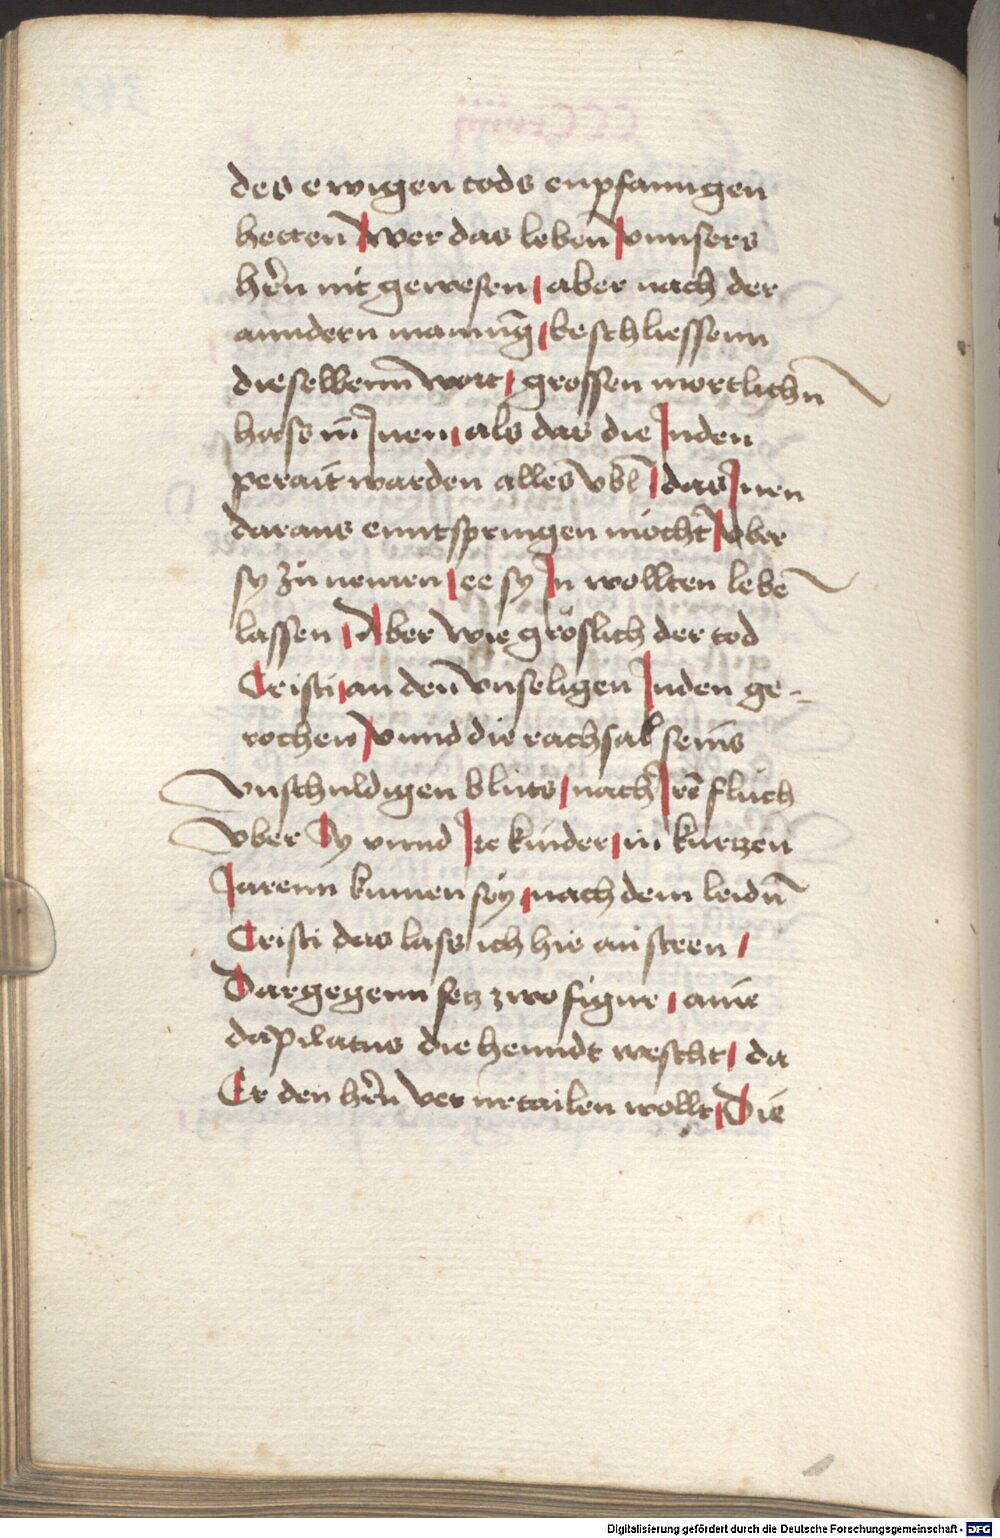 des ewigen tods enpfanngen
hetten / wer das leben̄ / vnnsers
hr̄n nit gewesen / aber nach der
anndern mainūg / beschliessenn
dieselbenn̄ wort / grossen mortlichn̄
hass in̄ Jnen / als das die Juden
perait warden alles v̈bl̄ / das Jnen
daraus enntspringen möcht̄ / v̈ber
sy zu nemen / ee sy Jn wollten lebē
lassen / Aber wie gröslich der tod
Cristi / an den̄ vnseligen Juden ge-
rochen / vnnd die rachsal seins
vnschuldigen bluts / nach Jrē fluch
vber Sy vnnd Jre kinder / in kurtzen
Jarenn kumen sey / nach dem leidn̄
Cristi das lass ich hie an steen /
Dargegenn setz zwo figur / ainē
da pilatus die henndt wescht / da
Er den hr̄n ver urtailen wollt / Die
Digitalisierung gefördert durch die Deutsche Forschungsgemeinschaft - DFG